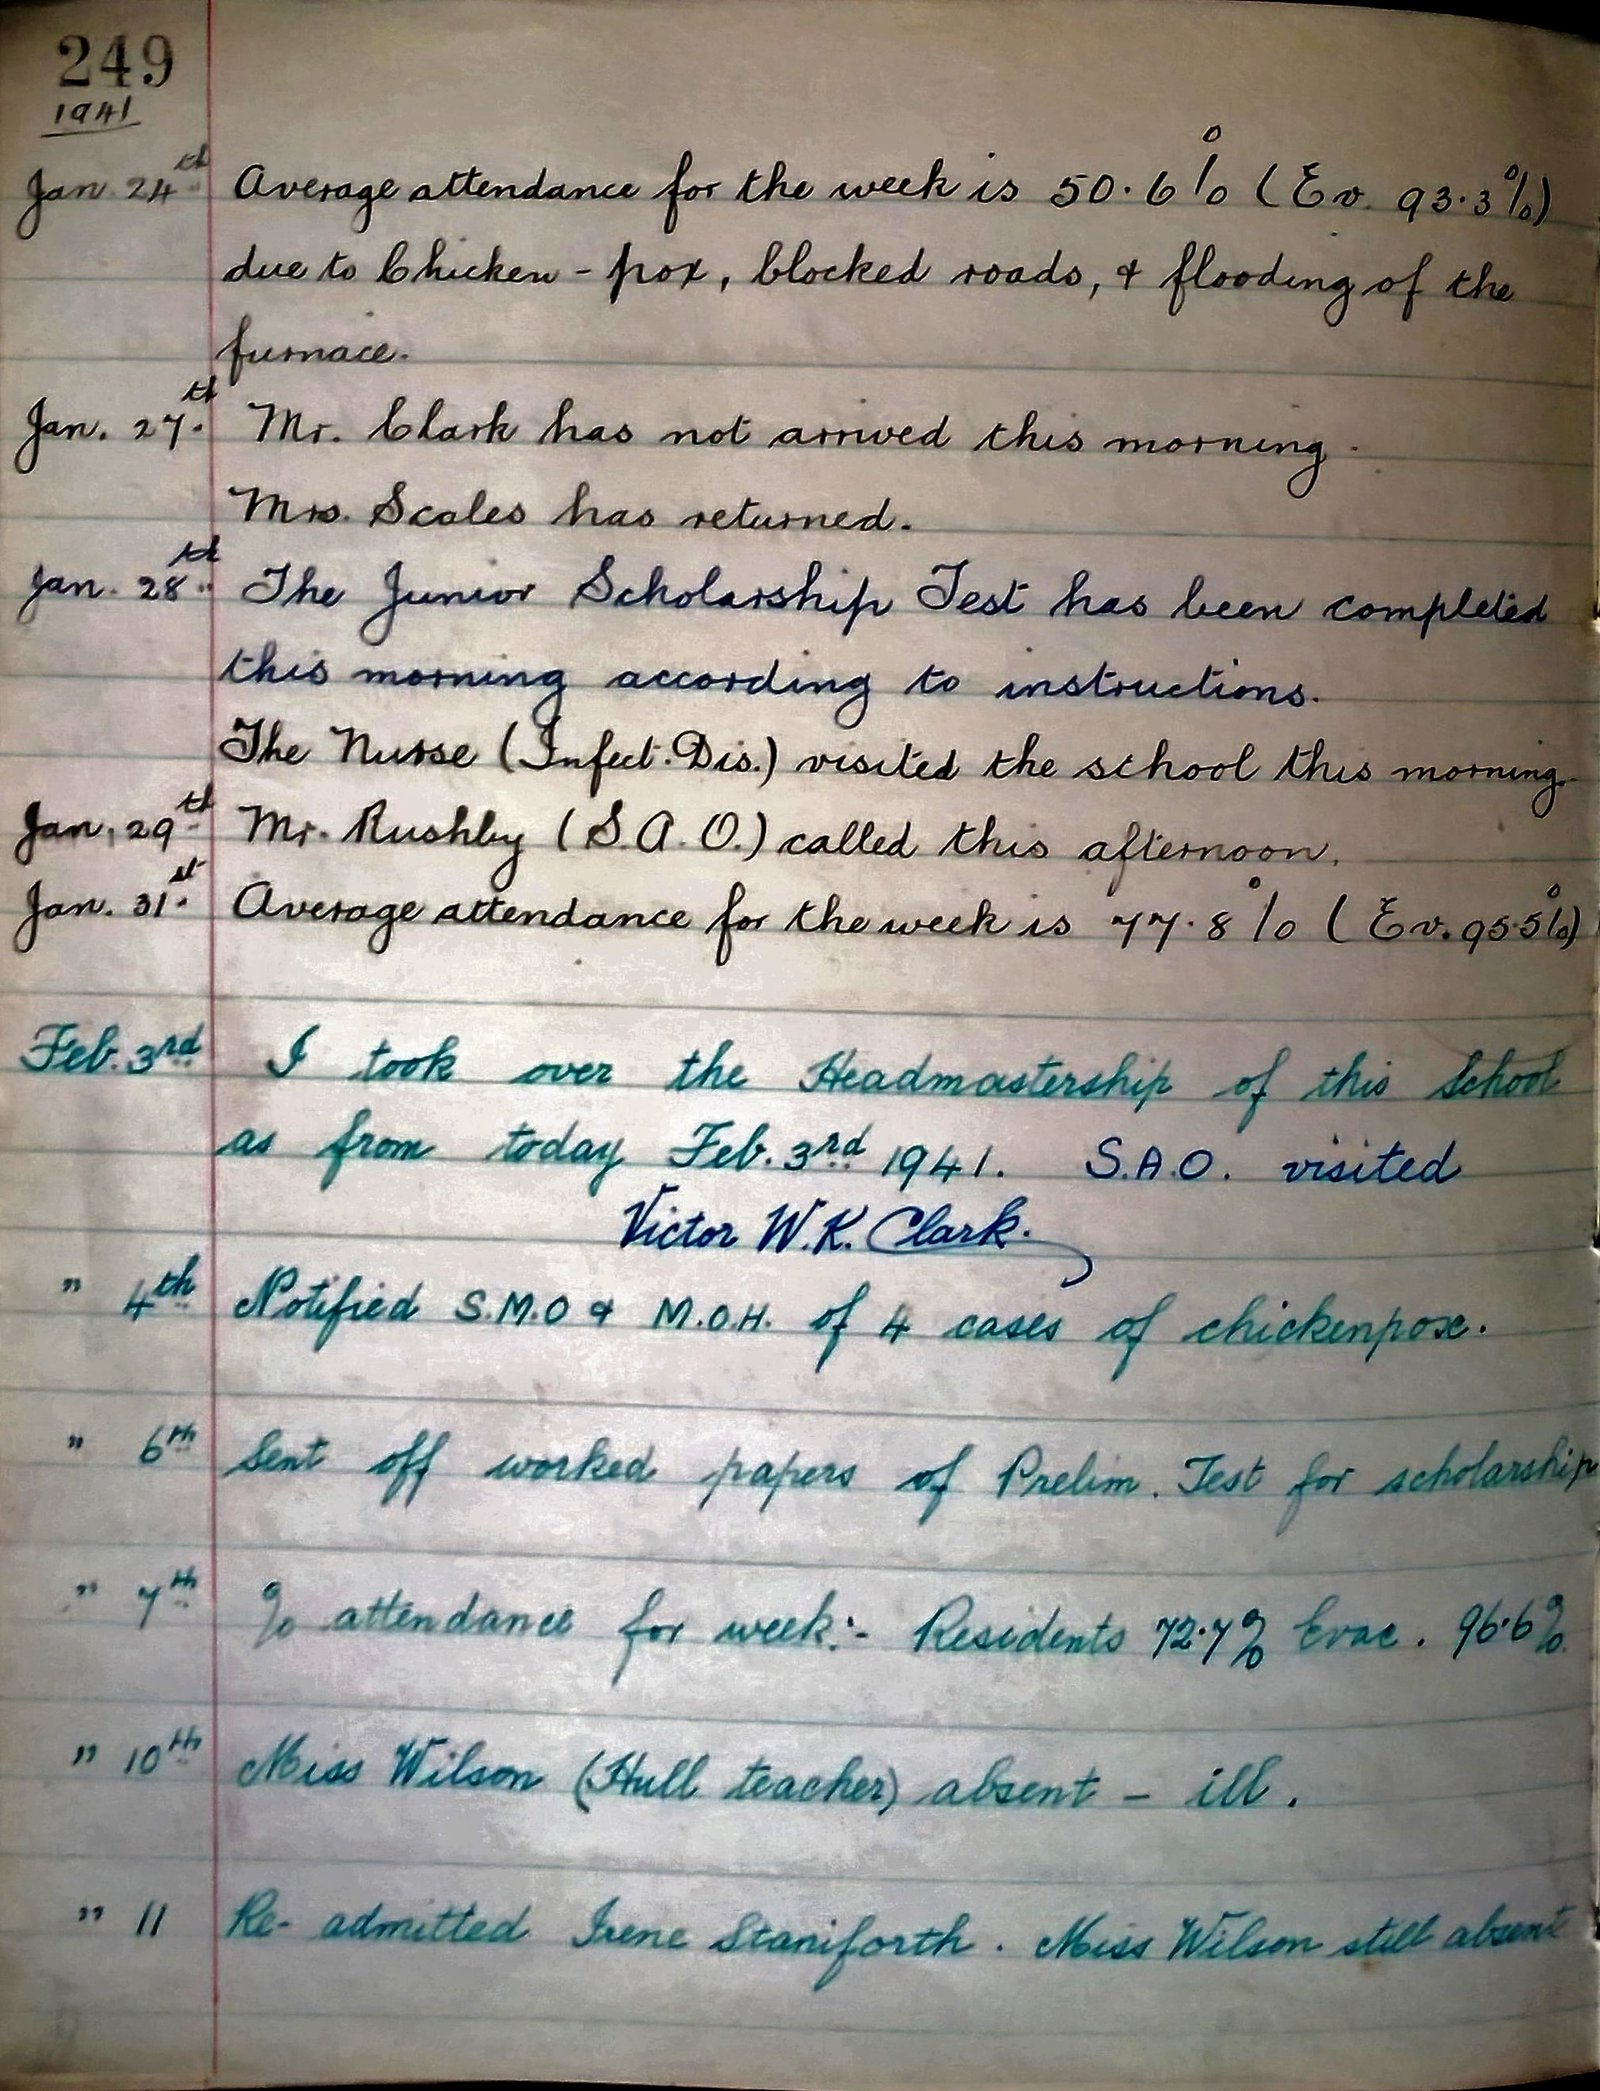 249
1941
Jan 24th Average attendance for the week is 50.6% (Ev. 93.3%)
due to Chicken-pox, blocked roads, & flooding of the
furnace.
Jan. 27th. Mr. Clark has not arrived this morning.
Mrs. Scales has returned.
Jan. 28th. The Junior Scholarship Test has been completed
this morning according to instructions.
The Nurse (Infect. Dis.) visited the school this morning.
Jan. 29th Mr. Rushby (S.A.O.) called this afternoon.
Jan. 31st. Average attendance for the week is 77.8% (Ev. 95.5%)
Feb. 3rd I took over the Headmastership of this School
as from today Feb. 3rd 1941. S.A.O. visited
Victor W.K. Clark.
" 4th Notified S.M.O & M.O.H. of 4 cases of chickenpox.
" 6th Sent off worked papers of Prelim. Test for scholarship
" 7th % attendance for week:- Residents 72.7% Evac. 96.6%
" 10th Miss Wilson (Hull teacher) absent - ill.
" 11 Re-admitted Irene Staniforth. Miss Wilson still absent